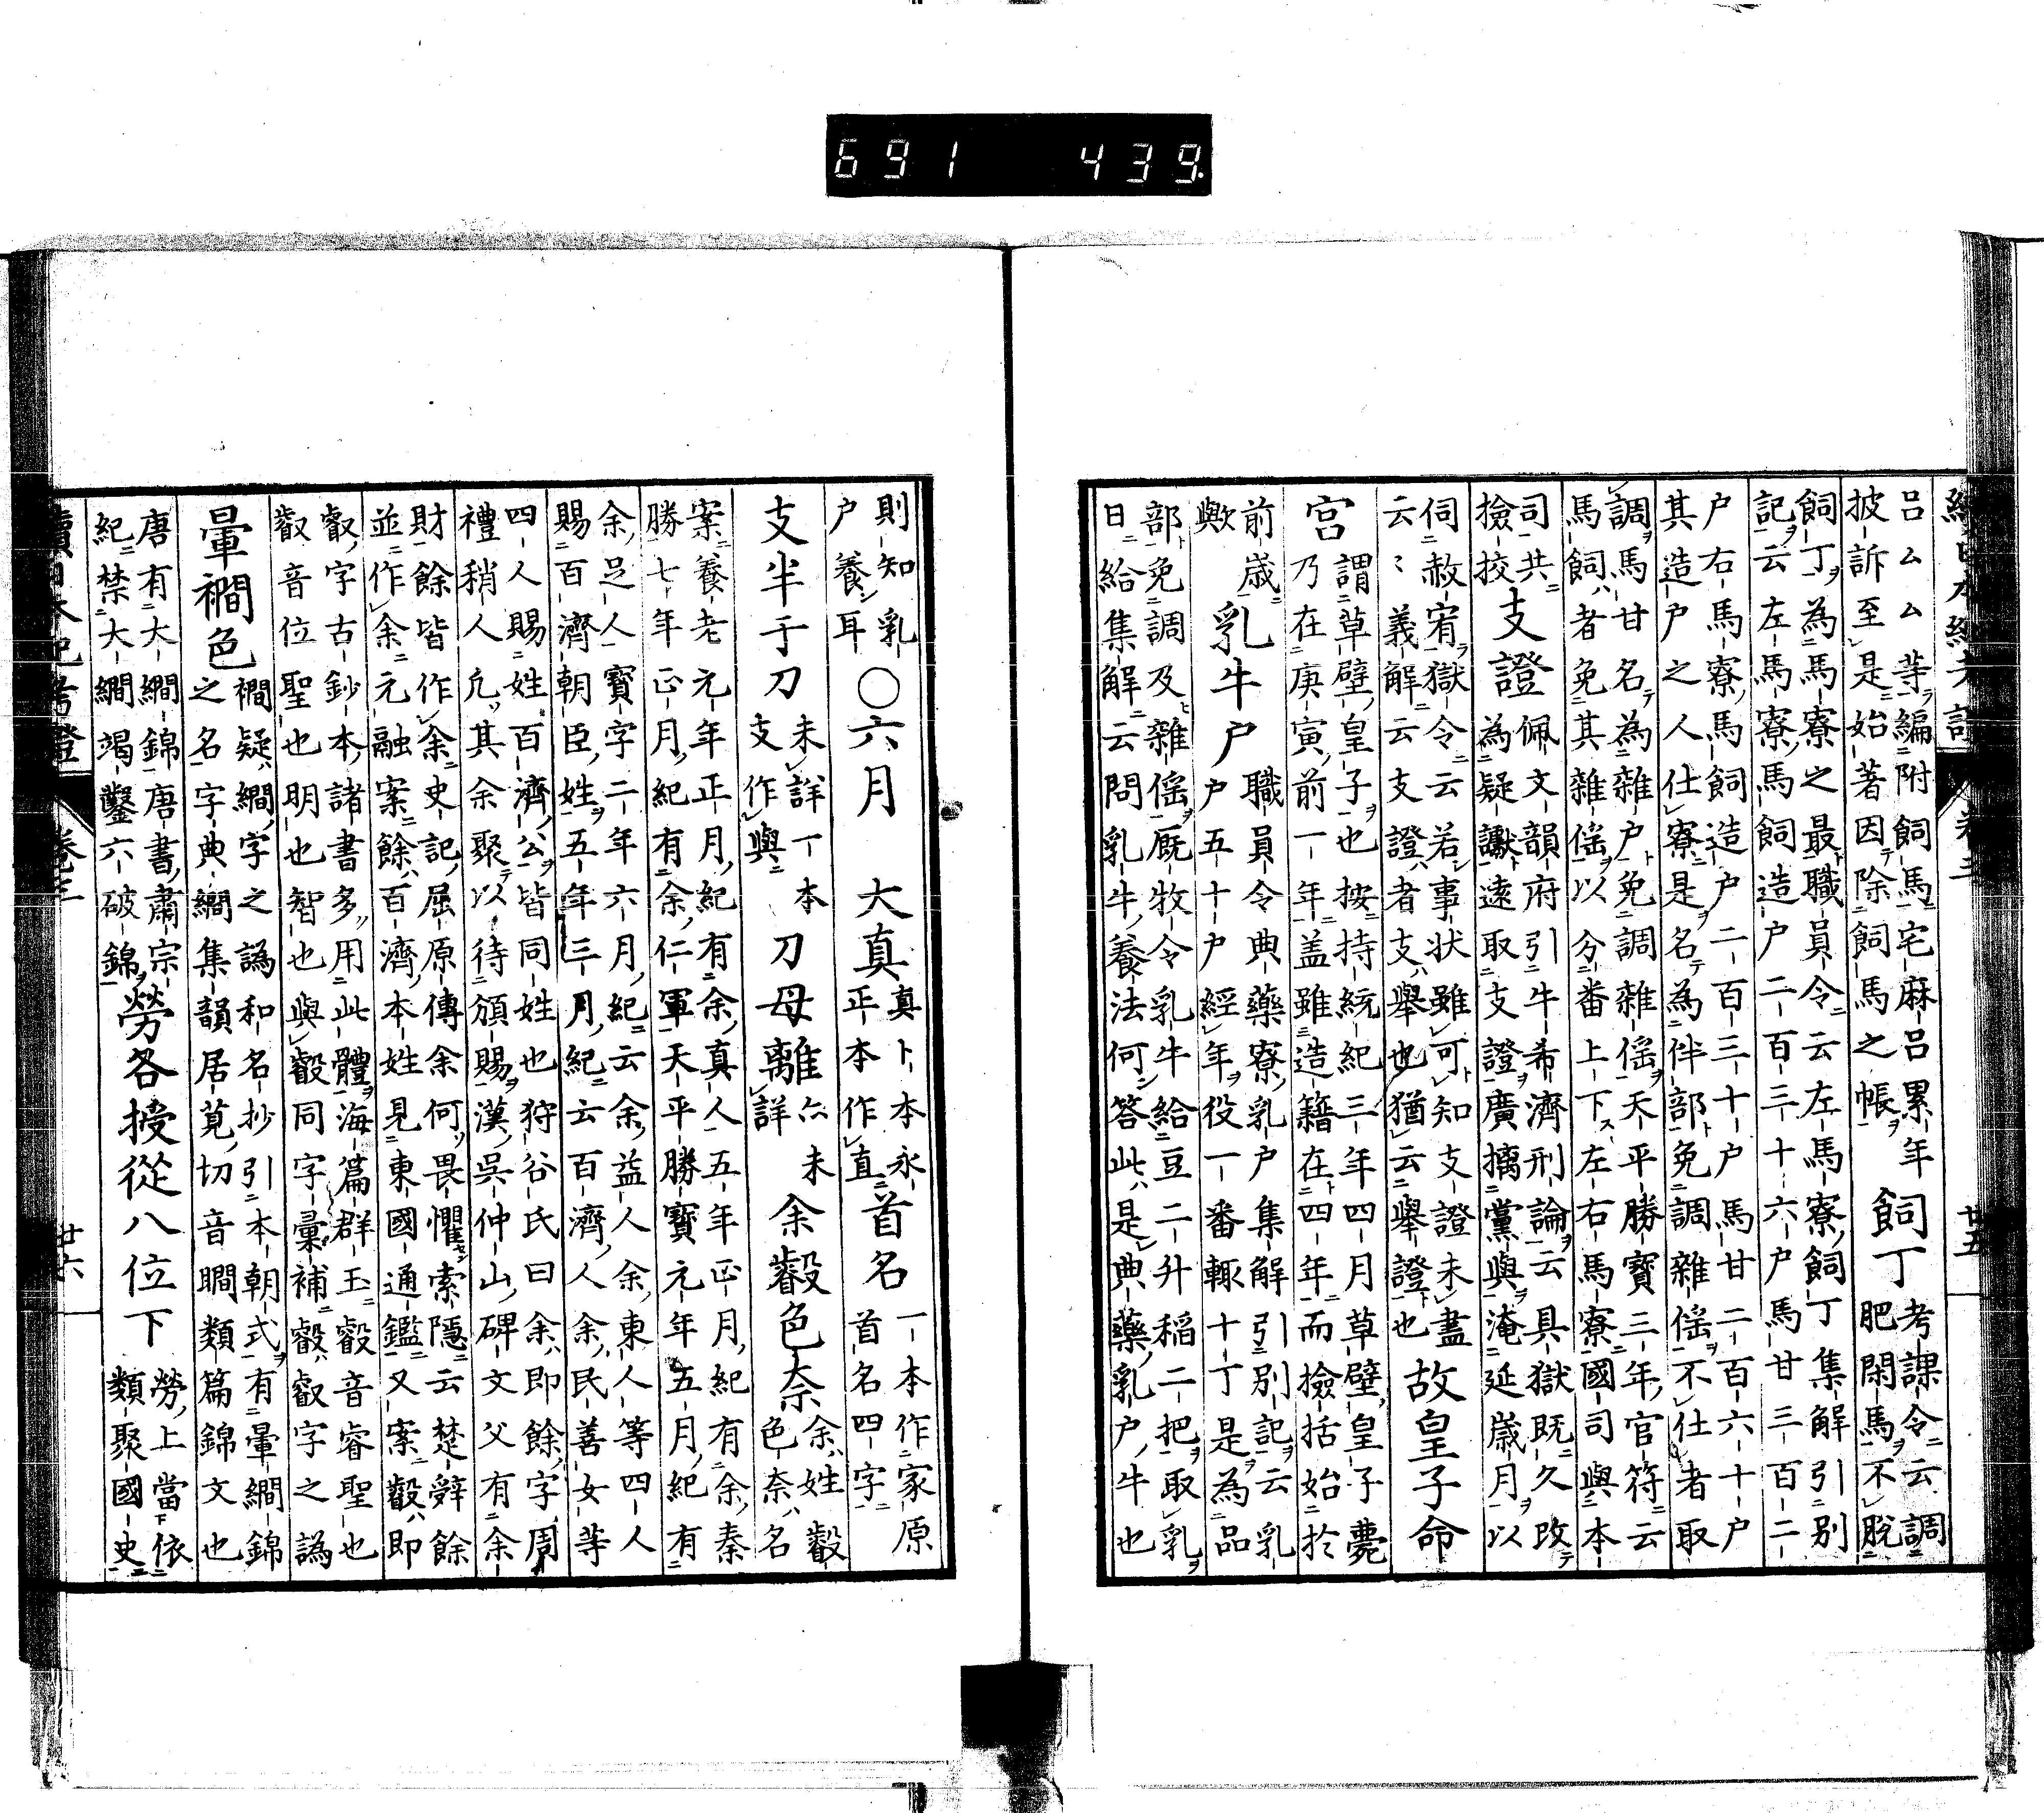 691 439
呂厶厶等編附飼馬宅麻呂累年
披訴至是始著因除飼馬之帳
飼丁
考課令云調
肥閑馬不脱
飼丁為馬寮之最職員令云左馬寮飼丁集解引別
記云左馬寮馬飼造戸二百三十六戸馬甘三百二
戸右馬寮馬飼造戸二百三十戸馬甘二百六十戸
其造戸之人仕寮是名為伴部免調雜徭不仕者取
調馬甘名為雜戸免調雜徭天平勝寶三年官符云
馬飼者免其雜徭以分番上下左右馬寮國司與本
司共
撿挍
支證
佩文韻府引牛希濟刑論云具獄既久改
為疑讞遠取支證廣摛黨與淹延歲月以
伺赦宥獄令云若事状雖可知支證未盡
云〻義解云支證者支舉也猶云舉證也
故皇子命
宮
謂草壁皇子也按持統紀三年四月草壁皇子薨
乃在庚寅前一年盖雖造籍在四年而撿括始於
前歲
歟
乳牛戸
職員令典藥寮乳戸集解引別記云乳
戸五十戸經年役一番輙十丁是為品
部免調及雜徭厩牧令乳牛給豆二升稻二把取乳
日給集解云問乳牛養法何答此是典藥乳戸牛也
則知乳
戸養耳
○六月
大真
真卜本永
正本作直
首名
一本作家原
首名四字
支半于刀
未詳一本
支作與
刀母離
亦未
詳
余㲉色奈
余姓㲉
色奈名
案養老元年正月紀有余真人五年正月紀有余秦
勝七年正月紀有余仁軍天平勝寶元年五月紀有
余足人寶字二年六月紀云余益人余東人等四人
賜百濟朝臣姓五年三月紀云百濟人余民善女等
四人賜姓百濟公皆同姓也狩谷氏曰余即餘字周
禮稍人凡其余聚以待頒賜漢吳仲山碑文父有余
財餘皆作余史記屈原傳余何畏懼索隱云楚辭餘
並作余元融案餘百濟本姓見東國通鑑又案㲉即
叡字古鈔本諸書多用此體海篇群玉㲉音睿聖也
叡音位聖也明也智也與㲉同字彙補㲉叡字之譌
暈襉色
襉疑繝字之譌和名抄引本朝式有暈繝錦
之名字典繝集韻居莧切音瞷類篇錦文也
唐有大繝錦唐書肅宗
紀禁大繝竭鑿六破錦
勞各授從八位下
勞上當依
類聚國史
續日本紀考證 卷三 廿六